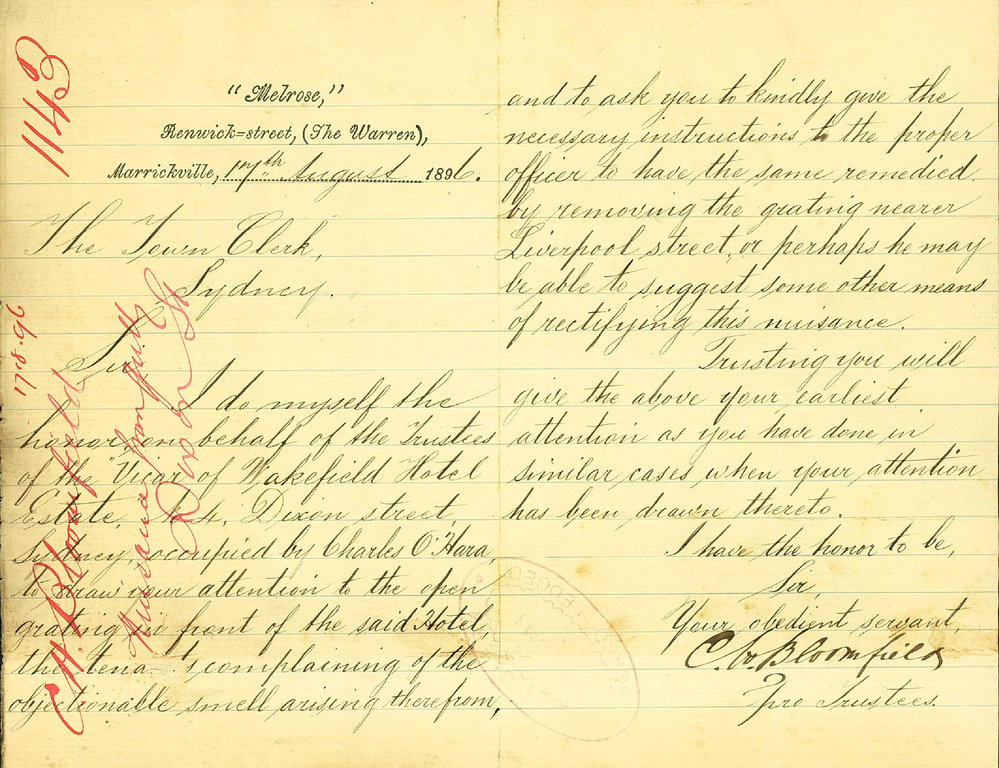 1143
"Melrose,"
Renwick=street, (The Warren),
Marrickville, 17th August 1896.
The Town Clerk,
Sydney.
Sir,
I do myself the
honor, on behalf of the Trustees
of the "Vicar of Wakefield Hotel
Estate, No 4, Dixon street,
Sydney, occupied by Charles O'Hara
to draw your attention to the open
grating in front of the said Hotel,
the tena t's complaining of the
objectionable smell arising therefrom,
17.8.96
C. W. Bloomfield
Nuisance from gully
Dixon St
and to ask you to kindly give the
necessary instructions to the proper
officer to have the same remedied.
by removing the grating nearer
Liverpool street, or perhaps he may
be able to suggest some other means
of rectifying this nuisance.
Trusting you will
give the above your earliest
attention as you have done in
similar cases when your attention
has been drawn thereto.
I have the honor to be,
Sir,
Your obedient servant,
C. W. Bloomfield
Pro Trustees.